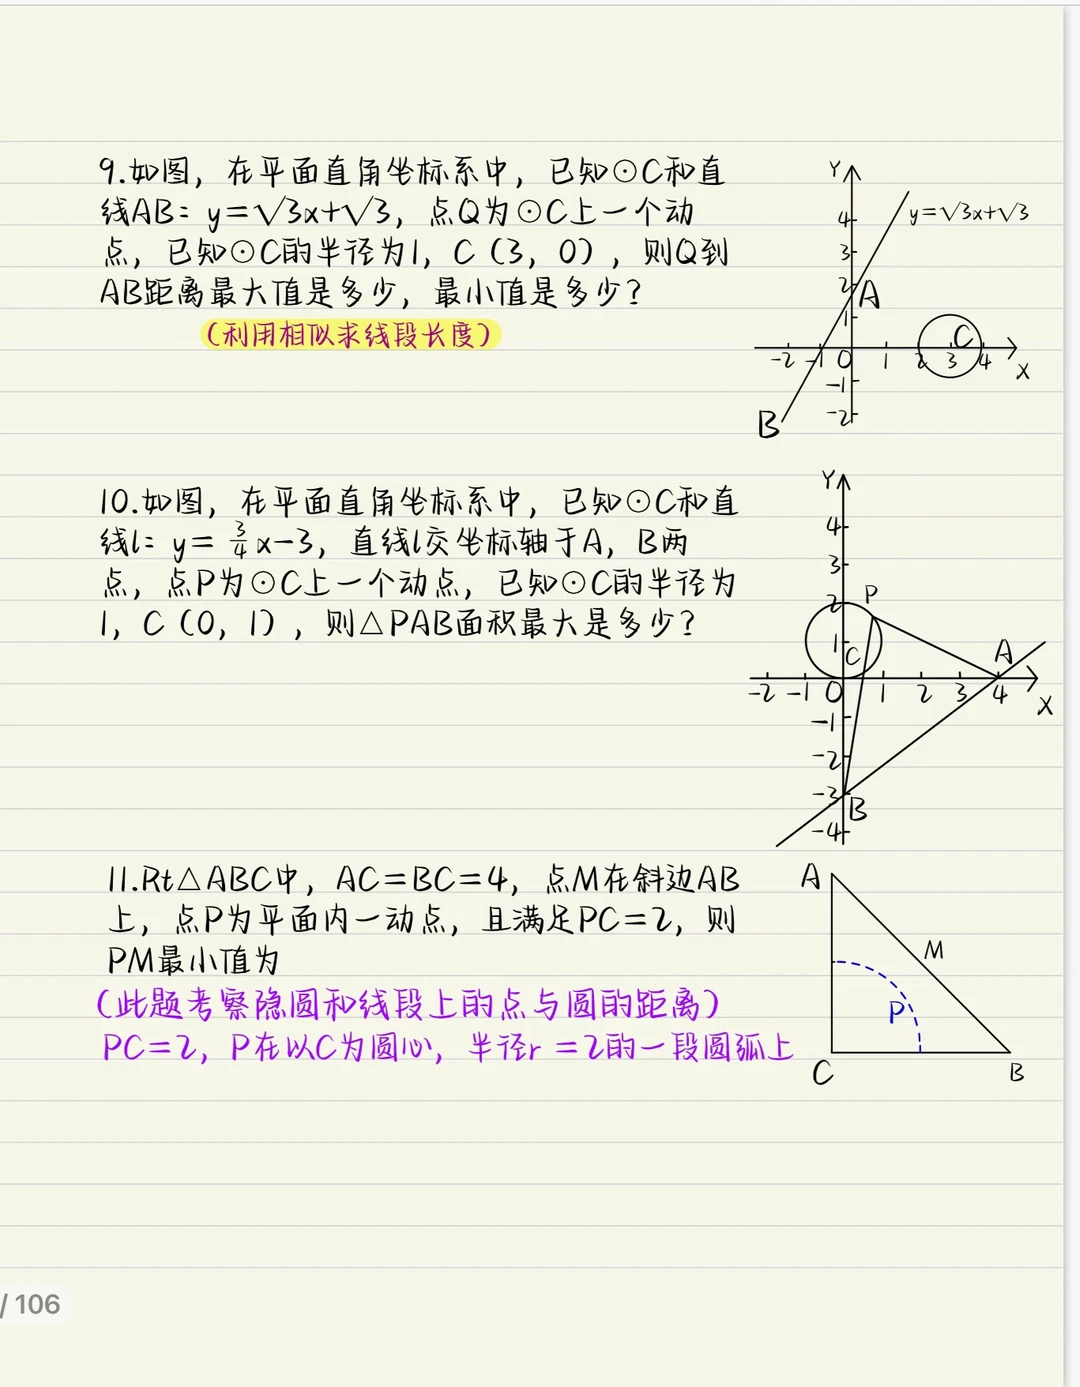 9.如图，在平面直角坐标系中，已知⊙C和直
线AB：y=√3x+√3，点Q为⊙C上一个动
点，已知⊙C的半径为1，C（3，0），则Q到
AB距离最大值是多少，最小值是多少？
（利用相似求线段长度）
Y
4
3
2
1
-2 -1 0 1 2 3 4
-1
-2
X
y=√3x+√3
A
B
C
10.如图，在平面直角坐标系中，已知⊙C和直
线l：y=3/4x-3，直线l交坐标轴于A，B两
点，点P为⊙C上一个动点，已知⊙C的半径为
1，C（0，1），则△PAB面积最大是多少？
Y
4
3
2
1
-2 -1 0 1 2 3 4
-1
-2
-3
-4
X
P
C
A
B
11.Rt△ABC中，AC=BC=4，点M在斜边AB
上，点P为平面内一动点，且满足PC=2，则
PM最小值为
（此题考察隐圆和线段上的点与圆的距离）
PC=2，P在以C为圆心，半径r=2的一段圆弧上
A
M
P
C
B
/ 106